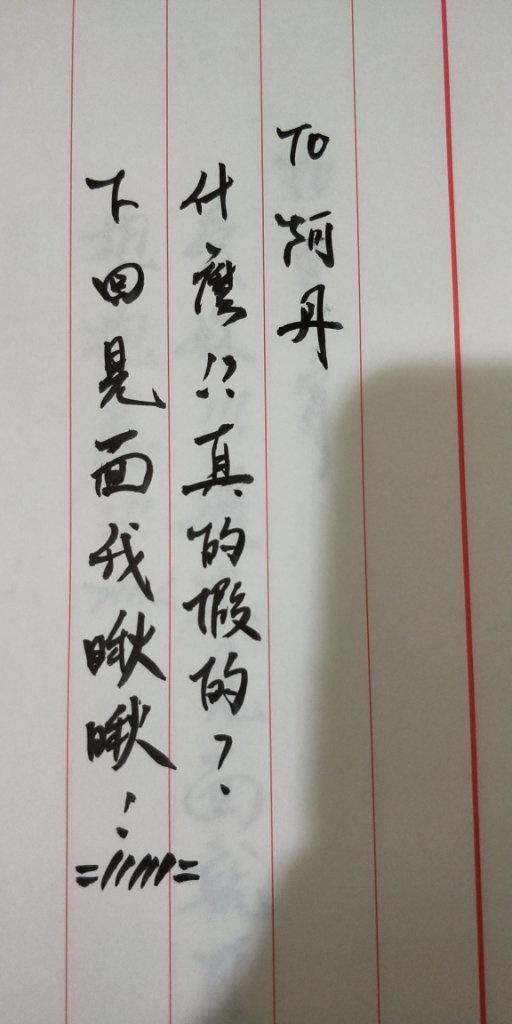 TO 阿丹
什麼!?真的假的?
下回見面我瞅瞅!
=/////=